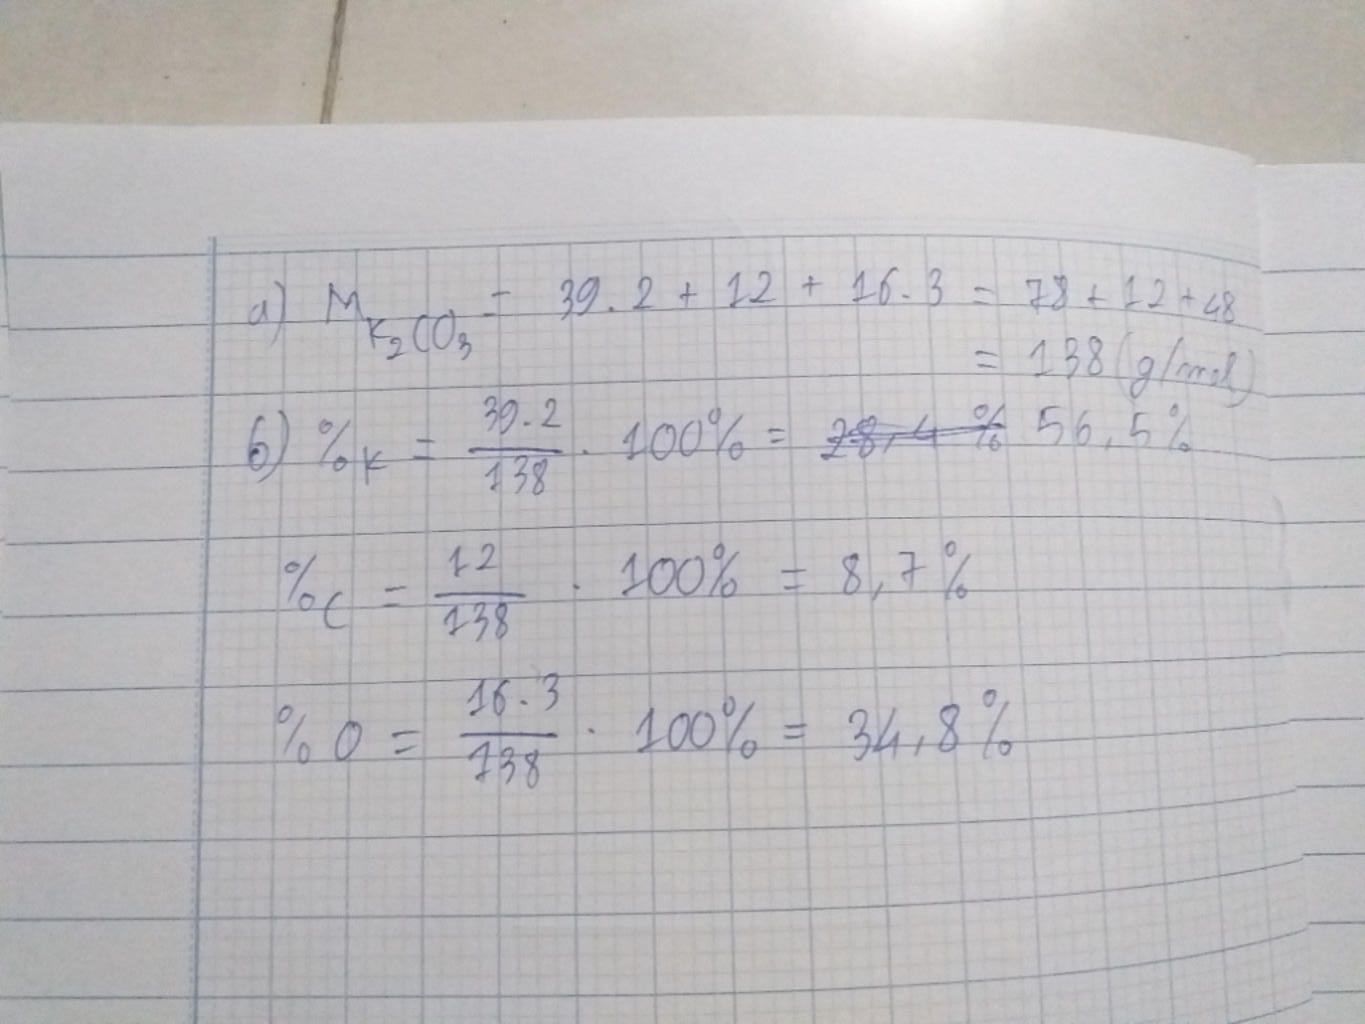 a) M K₂CO₃ = 39.2 + 12 + 16.3 = 78 + 12 + 48
= 138 (g/mol)
b) %K = 39.2/138 . 100% = ~~28,4%~~ 56,5%
%C = 12/138 . 100% = 8,7%
%O = 16.3/138 . 100% = 34,8%